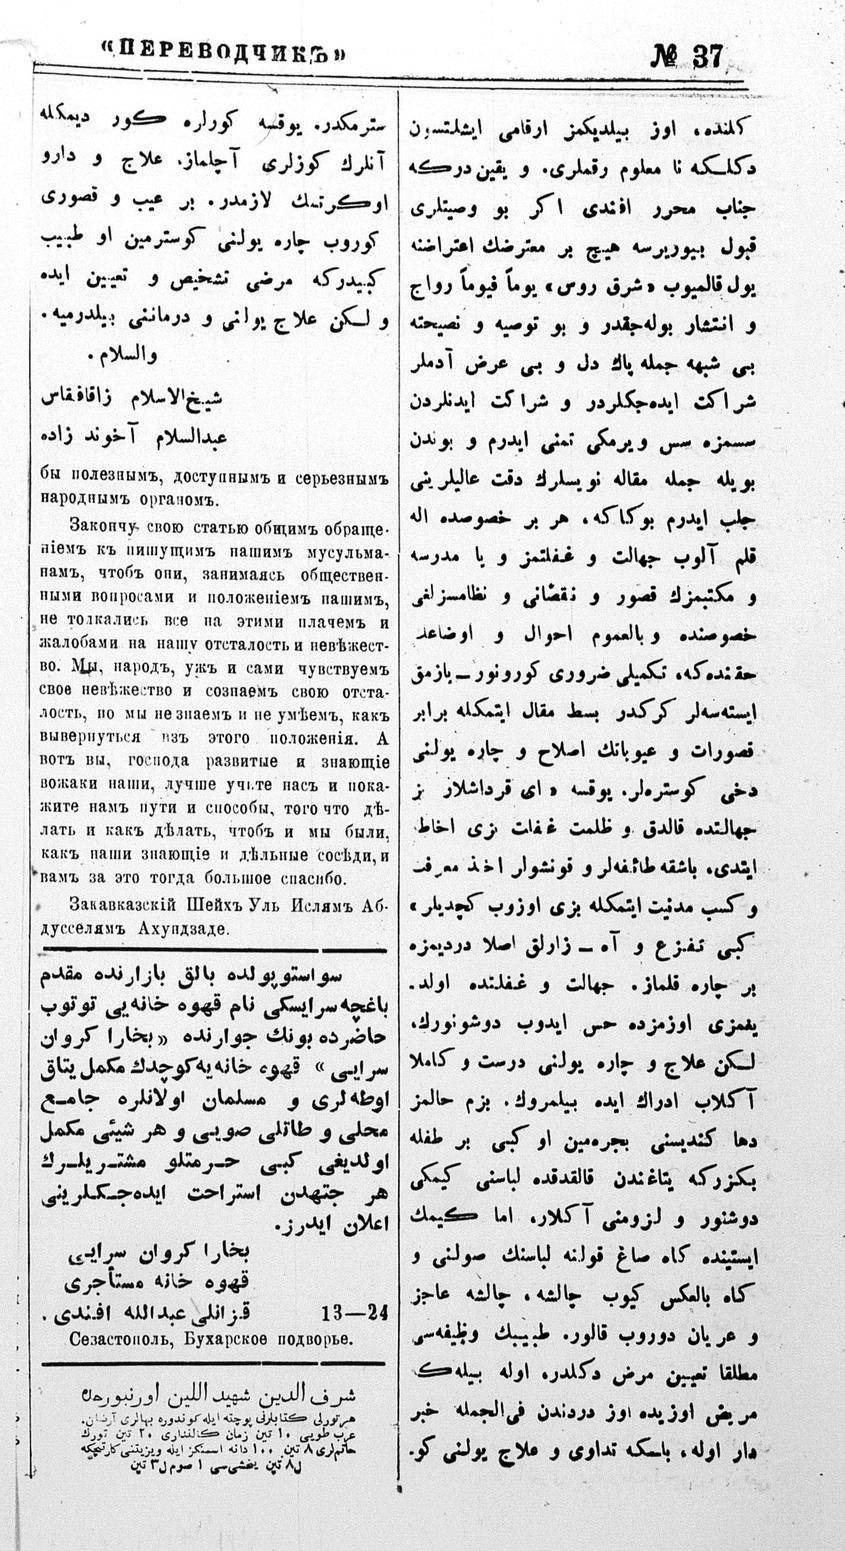 «ПЕРЕВОДЧИКЪ»
№ 37
كلنده، اوز بیلدیكمز ارقامی ایشلتسون
دكلسكه نا معلوم رقملری. و یقین دركه
جناب محرر افندی اكر بو وصیتلری
قبول بیوریرسه هیچ بر معترضك اعتراضنه
یول قالمیوب «شرق روس» یوماً فیوماً رواج
و انتشار بوله‌جقدر و بو توصیه و نصیحته
بی شبهه جمله پاك دل و بی عرض آدملر
شراكت ایده‌جكلردر و شراكت ایدنلردن
سسمزه سس ویرمكی تمنی ایدرم و بوندن
بویله جمله مقاله نویسلرك دقت عالیلرینی
جلب ایدرم بوكاكه، هر بر خصوصده اله
قلم آلوب جهالت و غفلتمز و یا مدرسه
و مكتبمزك قصور و نقصانی و نظامسزلغی
خصوصنده و بالعموم احوال و اوضاعد
حقنده‌كه، تكمیلی ضروری كورونور ــ یازمق
ایسته‌سه‌لر كركدر بسط مقال ایتمكله برابر
قصورات و عیوباتك اصلاح و چاره یولنی
دخی كوستره‌لر. یوقسه «ای قرداشلار بز
جهالتده قالدق و ظلمت غفلت بزی احاط
ایتدی، باشقه طائفه‌لر و قونشولر اخذ معرفت
و كسب مدنیت ایتمكله بزی اوزوب كچدیلر»
كبی تفزع و آه ــ زارلق اصلا دردیمزه
بر چاره قلماز. جهالت و غفلتده اولد.
یغمزی اوزمزده حس ایدوب دوشونورك،
لكن علاج و چاره یولنی درست و كاملا
آكلاب ادراك ایده بیلمروك. بزم حالمز
دها كندیسنی بجره‌مین او كبی بر طفله
بكزركه یتاغندن قالقدقده لباسنی كیمكی
دوشنور و لزومنی آكلار، اما كیمك
ایستینده كاه صاغ قولنه لباسنك صولنی و
كاه بالعكس كیوب چالشه، چالشه عاجز
و عریان دوروب قالور. طبیبك وظیفه‌سی
مطلقا تعیین مرض دكلدر، اوله بیله‌ك
مریض اوزیده اوز دردندن فی‌الجمله خبر
دار اوله، باسكه تداوی و علاج یولنی كو.
سترمكدر. یوقسه كورلره كور دیمكله
آنلرك كوزلری آچلماز، علاج و دارو
اوكرتمك لازمدر. بر عیب و قصوری
كوروب چاره یولنی كوسترمین او طبیب
كبیدركه مرضی تشخیص و تعیین ایده
و لكن علاج یولنی و درماننی بیلدرمیه.
والسلام.
شیخ‌الاسلام زاقافقاس
عبدالسلام آخوند زاده
бы полезнымъ, доступнымъ и серьезнымъ
народнымъ органомъ.
Закончу свою статью общимъ обраще-
ніемъ къ пишущимъ нашимъ мусульма-
намъ, чтобъ они, занимаясь обществен-
ными вопросами и положеніемъ нашимъ,
не толкались все на этими плачемъ и
жалобами на нашу отсталость и невѣжест-
во. Мы, народъ, ужъ и сами чувствуемъ
свое невѣжество и сознаемъ свою отста-
лость, но мы не знаемъ и не умѣемъ, какъ
вывернуться изъ этого положенія. А
вотъ вы, господа развитые и знающіе
вожаки наши, лучше учите насъ и пока-
жите намъ пути и способы, того что дѣ-
лать и какъ дѣлать, чтобъ и мы были,
какъ наши знающіе и дѣльные сосѣди, и
вамъ за это тогда большое спасибо.
Закавказскій Шейхъ Уль Ислямъ Аб-
дусселямъ Ахундзаде.
سواستوپولده بالق بازارنده مقدم
باغچه‌سرایسكی نام قهوه خانه‌یی توتوب
حاضرده بونك جوارنده «بخارا كروان
سرایی» قهوه خانه‌یه كوچدك مكمل یتاق
اوطه‌لری و مسلمان اولانلره جامع
محلی و طاتلی صویی و هر شیئی مكمل
اولدیغی كبی حرمتلو مشتریلرك
هر جتهدن استراحت ایده‌جكلرینی
اعلان ایدرز.
بخارا كروان سرایی
قهوه خانه مستأجری
قزانلی عبدالله افندی. 13—24
Севастополь, Бухарское подворье.
شرف الدین شهیداللین اورنبورغده
هرتورلی كتابلرنی پوچته ایله كوندوره بهالری آرزان.
عرب طوبی ١٠ تین زمان كالنداری ٢٠ تین تورك
خاتملری ٨ تین ١٠٠ دانه اسمكز ایله ویزیتنی كارتیچكه
ل٨ تین یخشی‌سی ١ صوم ل٣ تین